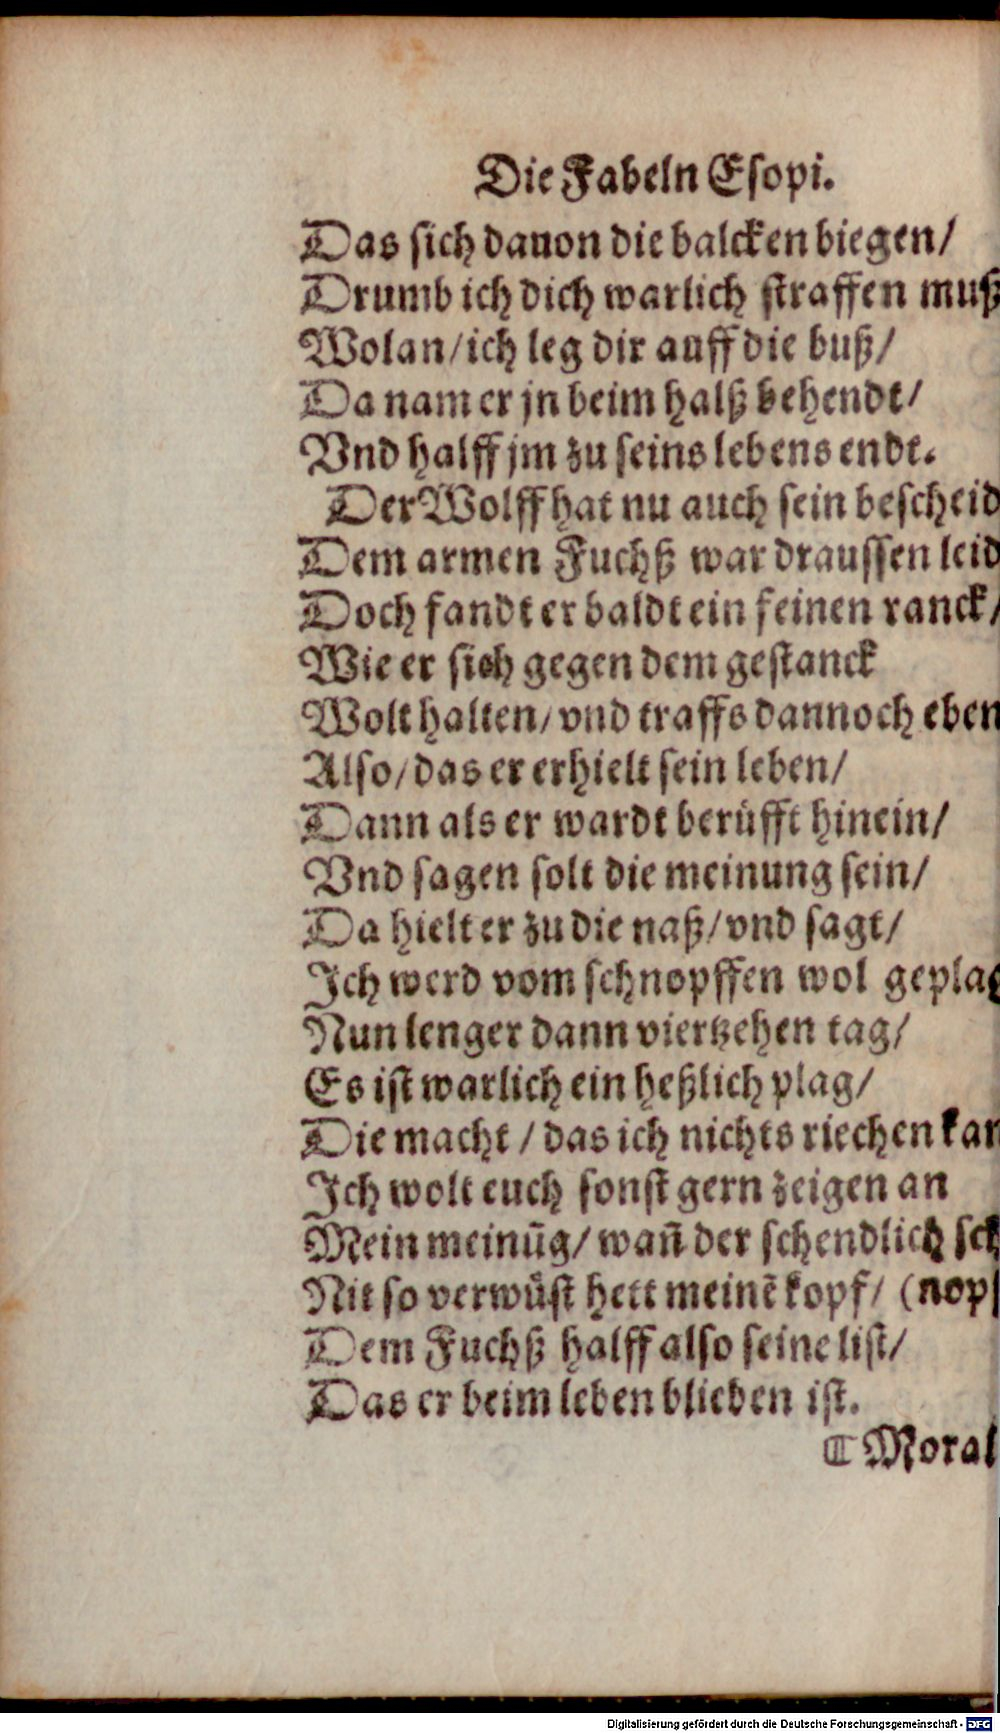 Die Fabeln Esopi.
Das sich dauon die balcken biegen/
Drumb ich dich warlich straffen muß
Wolan/ich leg dir auff die buß/
Da nam er jn beim halß behendt/
Vnd halff jm zu seins lebens endt.
Der Wolff hat nu auch sein bescheid
Dem armen Fuchß war draussen leid
Doch fandt er baldt ein feinen ranck/
Wie er sich gegen dem gestanck
Wolt halten/vnd traffs dannoch eben
Also/das er erhielt sein leben/
Dann als er wardt berüfft hinein/
Vnd sagen solt die meinung sein/
Da hielt er zu die naß/vnd sagt/
Ich werd vom schnopffen wol geplag
Nun lenger dann viertzehen tag/
Es ist warlich ein heßlich plag/
Die macht / das ich nichts riechen kan
Ich wolt euch sonst gern zeigen an
Mein meinūg/wañ der schendlich sch
Nit so verwüst hett meinē kopf/ (nop
Dem Fuchß halff also seine list/
Das er beim leben blieben ist.
⸿ Moral
Digitalisierung gefördert durch die Deutsche Forschungsgemeinschaft - DFG